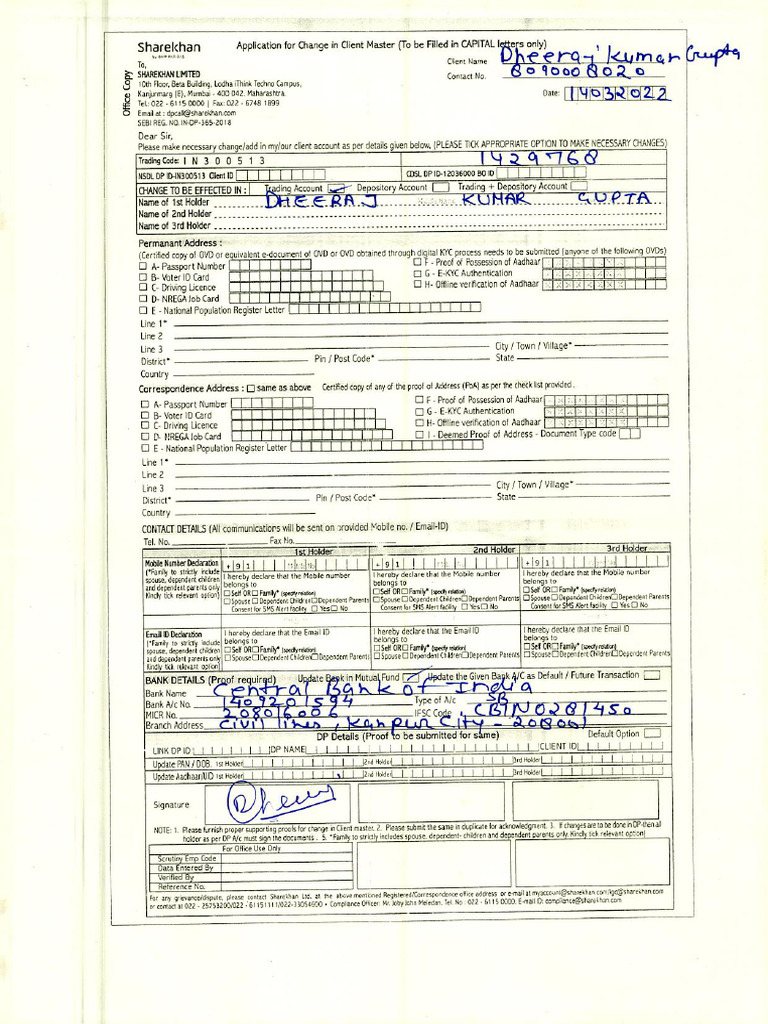 Office Copy
Sharekhan
by BNP PARIBAS
Application for Change in Client Master (To be Filled in CAPITAL letters only)
Client Name Dheeraj Kumar Gupta
Contact No. 8090008020
Date: 14032022
To,
SHAREKHAN LIMITED
10th Floor, Beta Building, Lodha iThink Techno Campus,
Kanjurmarg (E), Mumbai - 400 042. Maharashtra.
Tel: 022 - 6115 0000 | Fax: 022 - 6748 1899
Email at : dpcall@sharekhan.com
SEBI REG. NO. IN-DP-365-2018
Dear Sir,
Please make necessary change/add in my/our client account as per details given below, (PLEASE TICK APPROPRIATE OPTION TO MAKE NECESSARY CHANGES)
Trading Code: IN300513 1429768
NSDL DP ID-IN300513 Client ID CDSL DP ID-12036000 BO ID
CHANGE TO BE EFFECTED IN : Trading Account Depository Account Trading + Depository Account
Name of 1st Holder DHEERAJ KUMAR GUPTA
Name of 2nd Holder
Name of 3rd Holder
Permanant Address :
(Certified copy of OVD or equivalent e-document of OVD or OVD obtained through digital KYC process needs to be submitted (anyone of the following OVDs)
A- Passport Number F - Proof of Possession of Aadhaar
B- Voter ID Card G - E-KYC Authentication
C- Driving Licence H- Offline verification of Aadhaar
D- NREGA Job Card
E - National Population Register Letter
Line 1*
Line 2
Line 3 City / Town / Village*
District* Pin / Post Code* State
Country
Correspondence Address : same as above Certified copy of any of the proof of Address (PoA) as per the check list provided.
A- Passport Number F - Proof of Possession of Aadhaar
B- Voter ID Card G - E-KYC Authentication
C- Driving Licence H- Offline verification of Aadhaar
D- NREGA Job Card I - Deemed Proof of Address - Document Type code
E - National Population Register Letter
Line 1*
Line 2
Line 3 City / Town / Village*
District* Pin / Post Code* State
Country
CONTACT DETAILS (All communications will be sent on provided Mobile no. / Email-ID)
Tel. No. Fax No.
1st Holder 2nd Holder 3rd Holder
Mobile Number Declaration
(*Family to strictly include spouse, dependent children and dependent parents only Kindly tick relevant option)
+91 +91 +91
I hereby declare that the Mobile number belongs to I hereby declare that the Mobile number belongs to I hereby declare that the Mobile number belongs to
Self OR Family* (specify relation) Self OR Family* (specify relation) Self OR Family* (specify relation)
Spouse Dependent Children Dependent Parents Spouse Dependent Children Dependent Parents Spouse Dependent Children Dependent Parents
Consent for SMS Alert facility Yes No Consent for SMS Alert facility Yes No Consent for SMS Alert facility Yes No
Email ID Declaration
(*Family to strictly include spouse, dependent children and dependent parents only Kindly tick relevant option)
I hereby declare that the Email ID belongs to I hereby declare that the Email ID belongs to I hereby declare that the Email ID belongs to
Self OR Family* (specify relation) Self OR Family* (specify relation) Self OR Family* (specify relation)
Spouse Dependent Children Dependent Parents Spouse Dependent Children Dependent Parents Spouse Dependent Children Dependent Parents
BANK DETAILS (Proof required) Update Bank in Mutual Fund Update the Given Bank A/C as Default / Future Transaction
Bank Name Central Bank of India
Bank A/c No. 1409201594 Type of A/c SB
MICR No. 208016006 IFSC Code CBIN0281450
Branch Address Civil lines, Kanpur City - 208001
DP Details (Proof to be submitted for same) Default Option
LINK DP ID DP NAME CLIENT ID
Update PAN / DOB. 1st Holder 2nd Holder 3rd Holder
Update Aadhaar/UID 1st Holder 2nd Holder 3rd Holder
Signature
NOTE: 1. Please furnish proper supporting proofs for change in Client master. 2. Please submit the same in duplicate for acknowledgment. 3. If changes are to be done in DP-then all
holder as per DP A/c must sign the documents . 5. *Family to strictly includes spouse, dependent- children and dependent parents only. Kindly tick relevant option)
For Office Use Only
Scrutiny Emp Code
Data Entered By
Verified By
Reference No.
For any grievance/dispute, please contact Sharekhan Ltd. at the above mentioned Registered/Correspondence office address or e-mail at myaccount@sharekhan.com/igc@sharekhan.com
or contact at 022 - 25753200/022 - 61151111/022-33054600 • Compliance Officer: Mr. Joby John Meledan. Tel. No : 022 - 6115 0000. E-mail ID: compliance@sharekhan.com